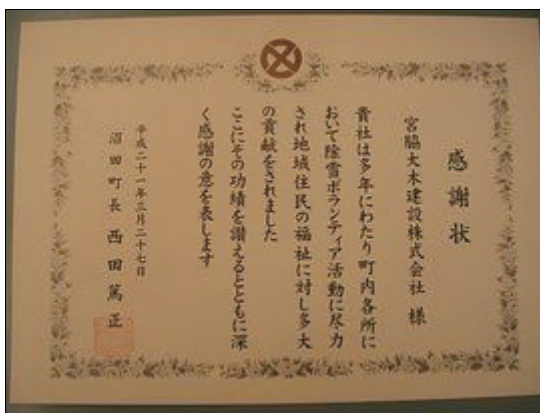 感謝状
宮脇土木建設株式会社 様
貴社は多年にわたり町内各所に
おいて除雪ボランティア活動に尽力
され地域住民の福祉に対し多大
の貢献をされました
ここにその功績を讃えるとともに深
く感謝の意を表します
平成二十一年三月二十七日
沼田町長 西田篤正